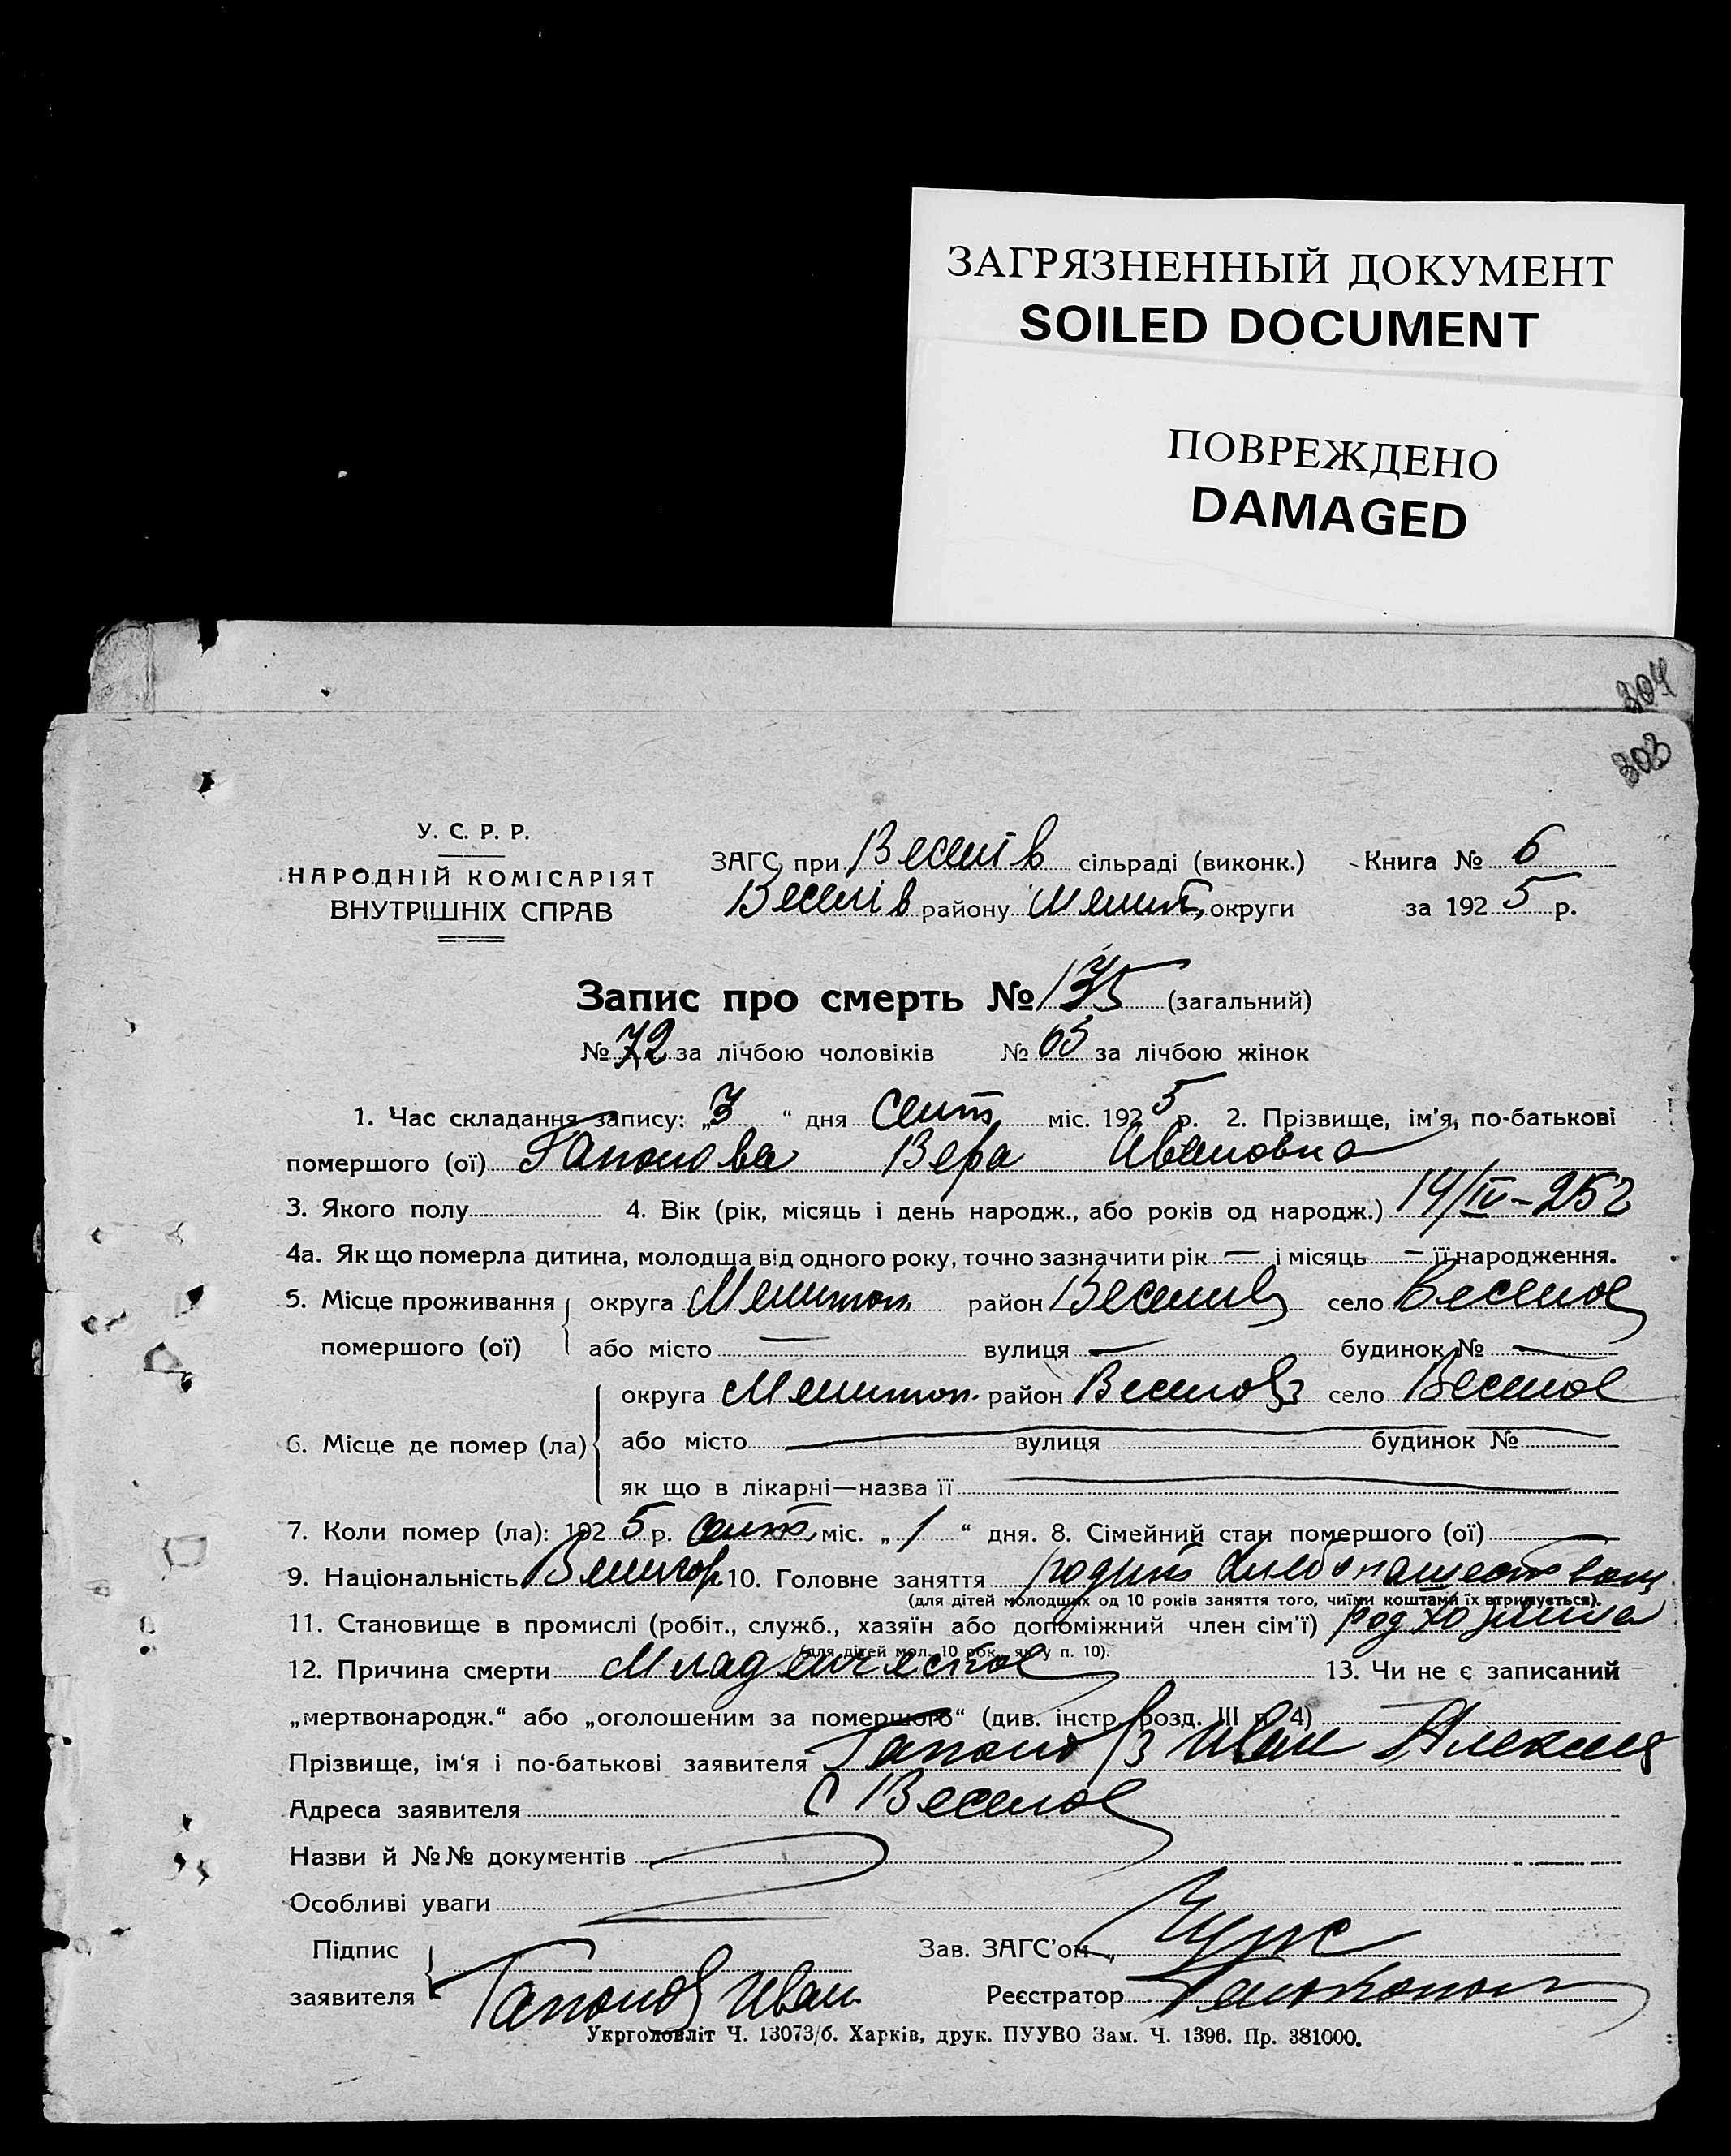 ЗАГРЯЗНЕННЫЙ ДОКУМЕНТ
SOILED DOCUMENT
ПОВРЕЖДЕНО
DAMAGED
304
303
У. С. Р. Р.
НАРОДНІЙ КОМІСАРІЯТ
ВНУТРІШНІХ СПРАВ
ЗАГС при Веселів сільраді (виконк.)
Веселів району Мелит. округи
Книга № 6
за 1925 р.
Запис про смерть № 135 (загальний)
№ 72 за лічбою чоловіків № 63 за лічбою жінок
1. Час складання запису: „3“ дня Сент міс. 1925 р. 2. Прізвище, ім'я, по-батькові
помершого (ої) Гапонова Вера Ивановна
3. Якого полу 4. Вік (рік, місяць і день народж., або років од народж.) 14/IV-25 г
4а. Як що померла дитина, молодша від одного року, точно зазначити рік — і місяць — її народження.
5. Місце проживання округа Мелитоп район Веселів село Веселое
помершого (ої) або місто — вулиця — будинок № —
округа Мелитоп. район Веселов село Веселое
6. Місце де помер (ла) або місто вулиця будинок №
як що в лікарні—назва її
7. Коли помер (ла): 1925 р. сент. міс. „1“ дня. 8. Сімейний стан помершого (ої) —
9. Національність Великор. 10. Головне заняття родит хлебопашество
(для дітей молодших од 10 років заняття того, чиїми коштами їх втримується).
11. Становище в промислі (робіт., служб., хазяїн або допоміжний член сім'ї) род хозяина
(для дітей мол. 10 рок., як у п. 10).
12. Причина смерти Младенческое 13. Чи не є записаний
„мертвонародж.“ або „оголошеним за помершого“ (див. інстр. розд. III п. 4)
Прізвище, ім'я і по-батькові заявителя Гапонов Иван Алексеев
Адреса заявителя С Веселое
Назви й №№ документів
Особливі уваги
Підпис
заявителя Гапонов Иван
Зав. ЗАГС'ом
Реєстратор
Укрголовліт Ч. 13073/б. Харків, друк. ПУУВО Зам. Ч. 1396. Пр. 381000.